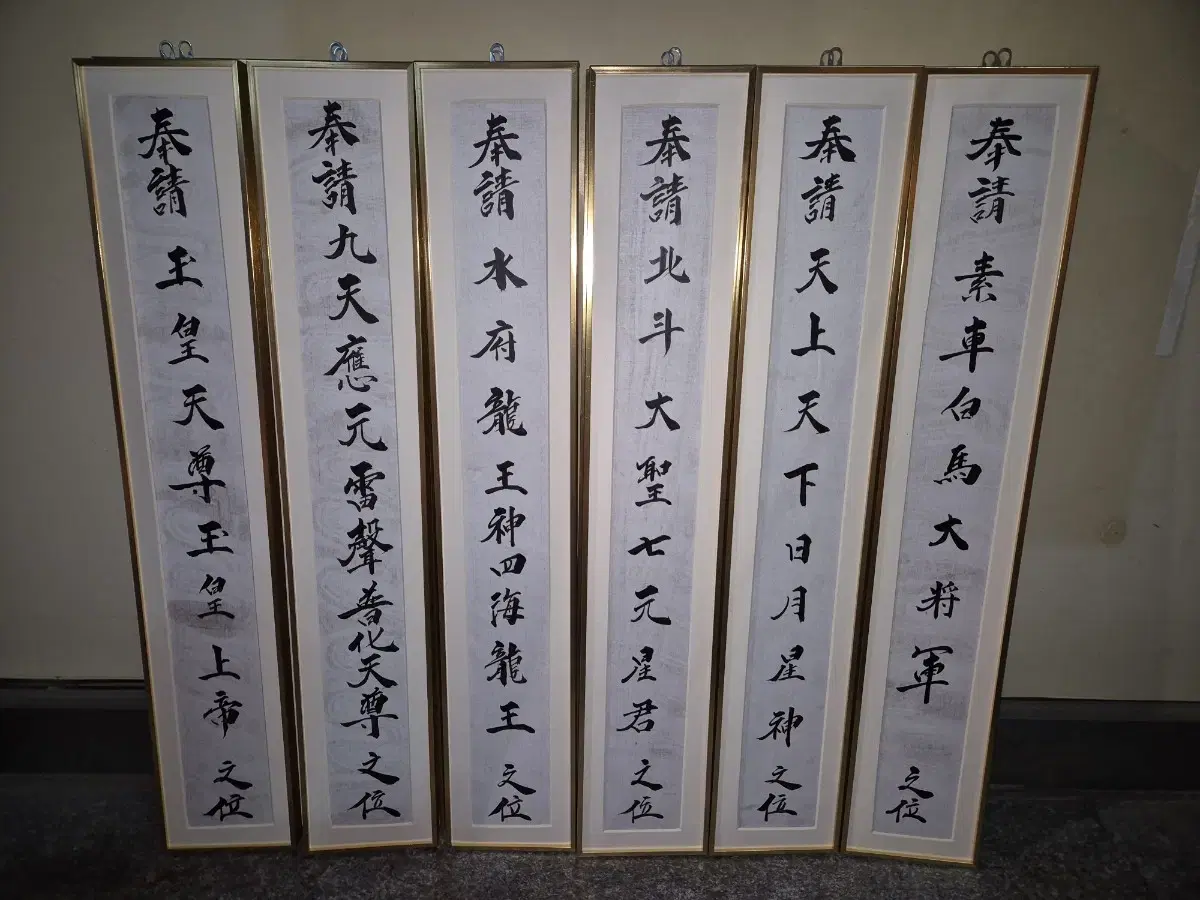 奉請玉皇天尊玉皇上帝之位
奉請九天應元雷聲普化天尊之位
奉請水府龍王神四海龍王之位
奉請北斗大聖七元星君之位
奉請天上天下日月星神之位
奉請素車白馬大將軍之位